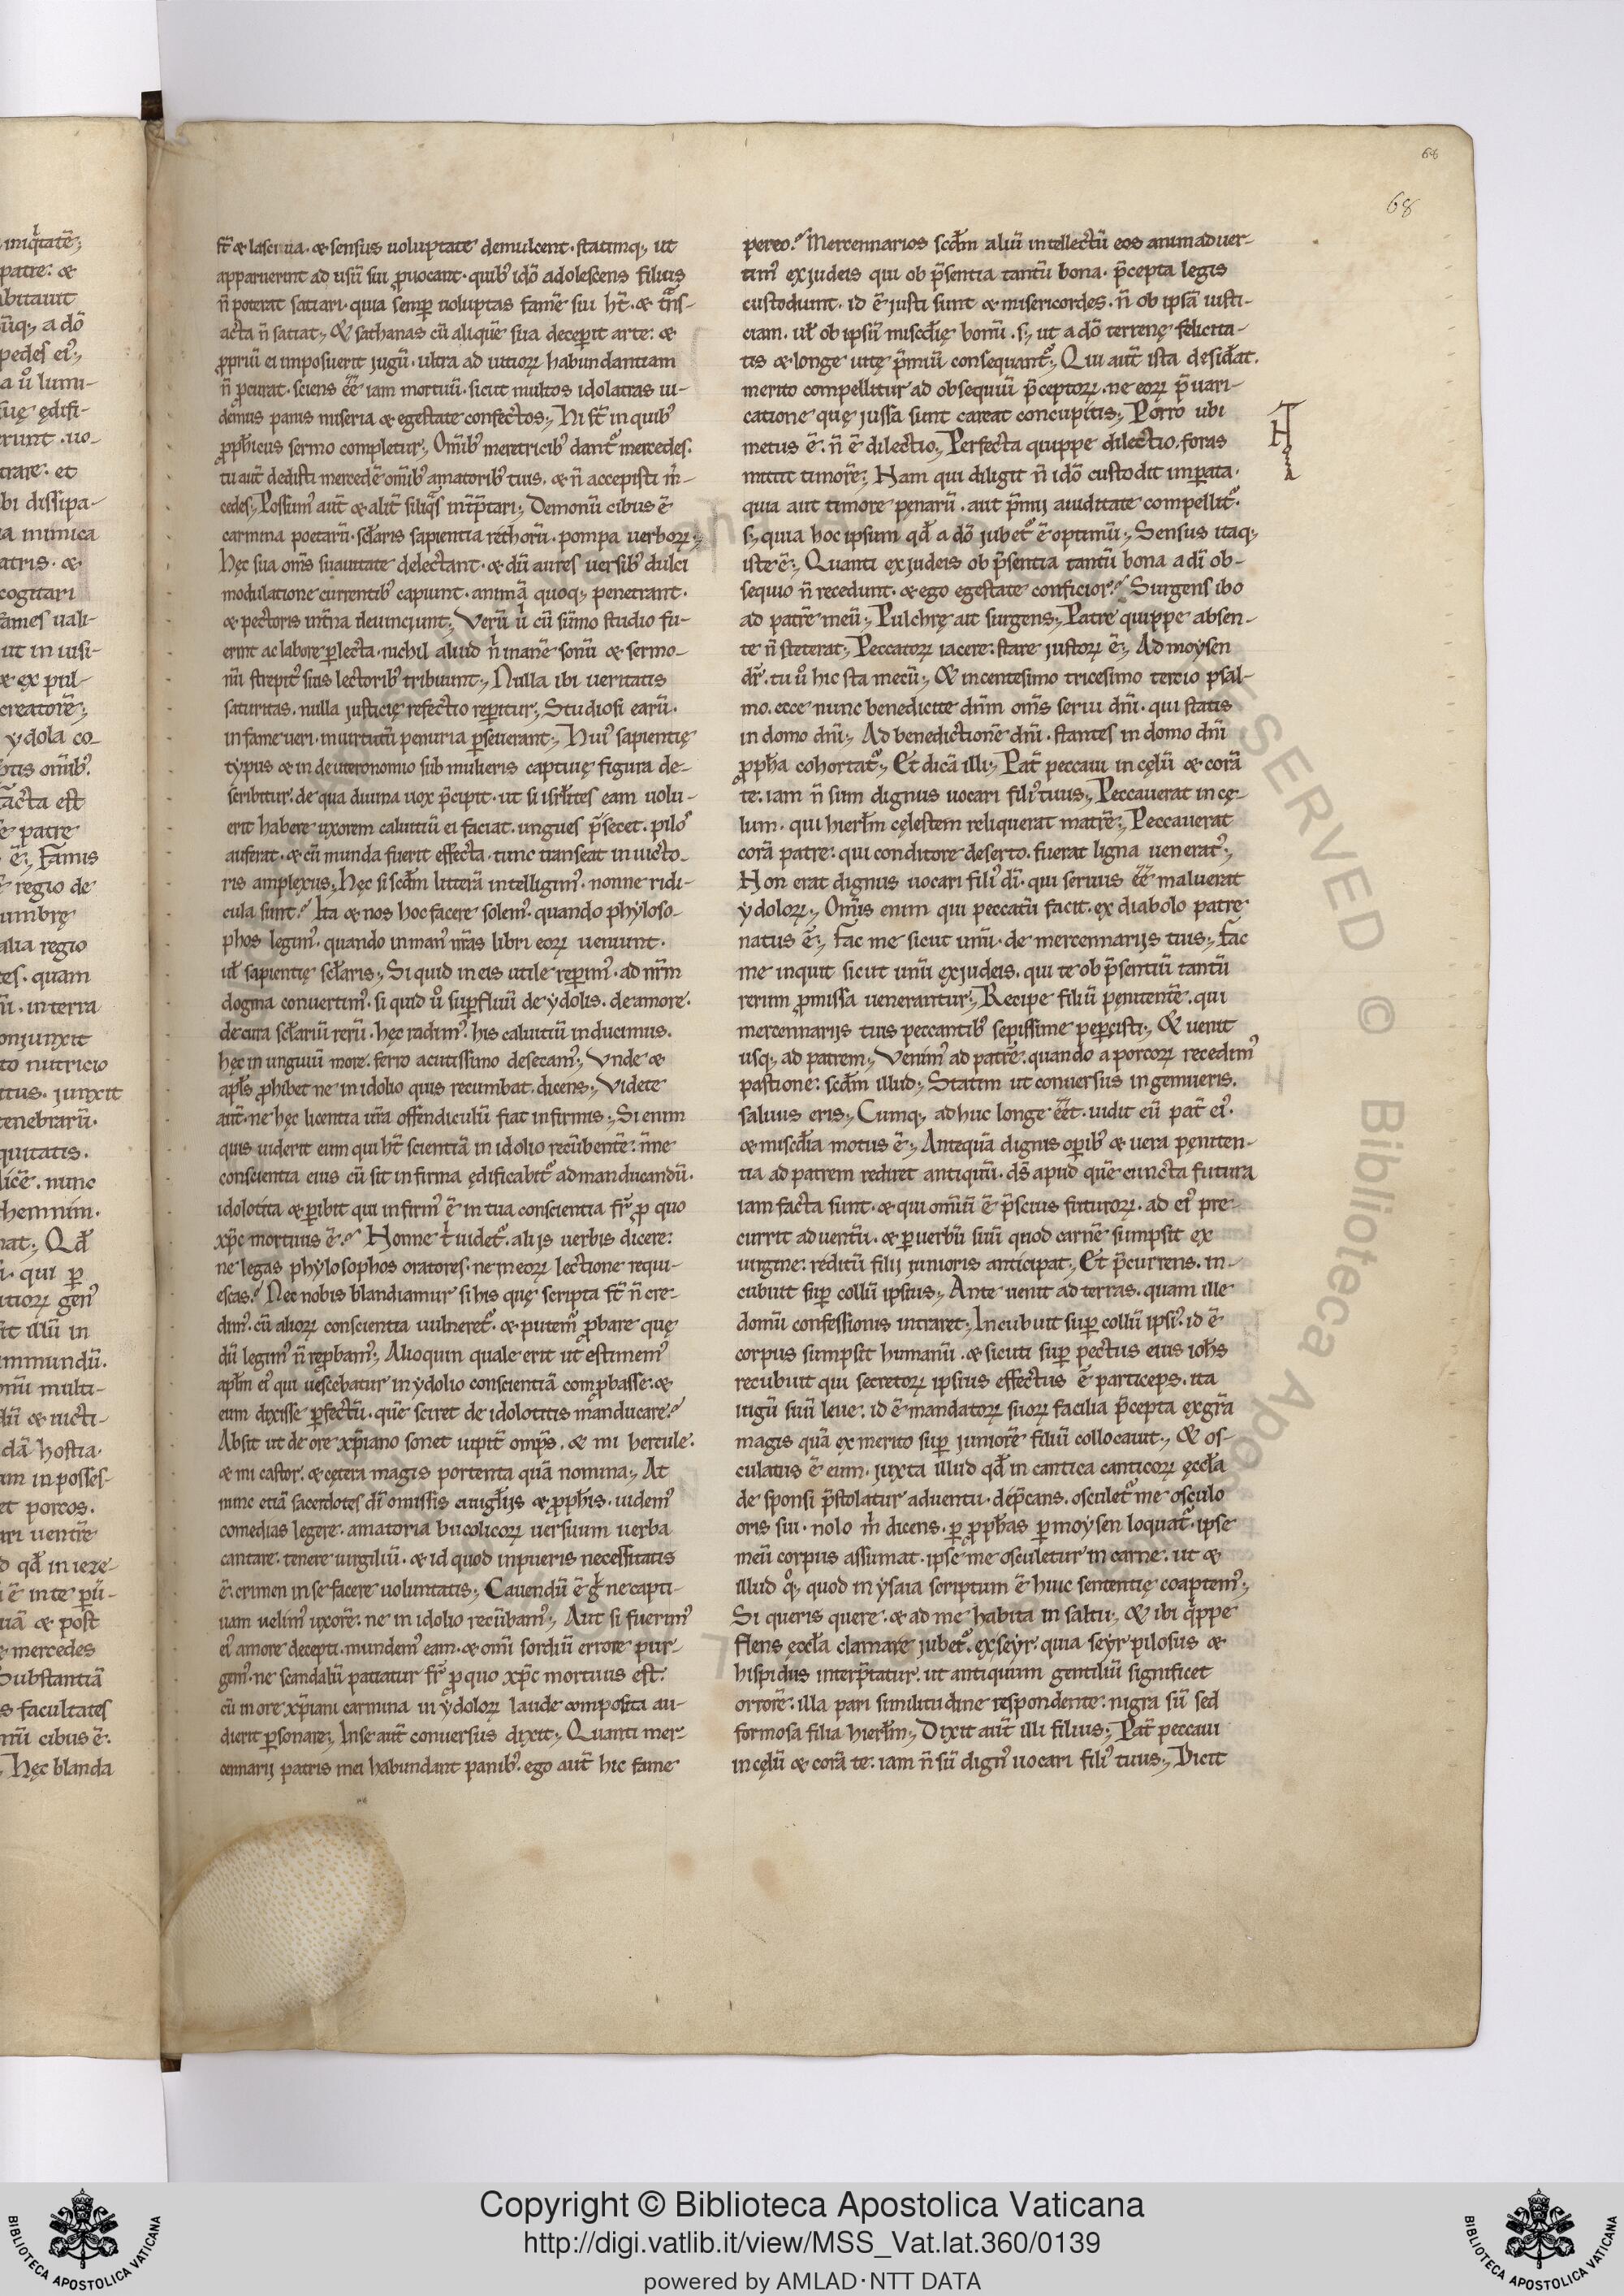 68
68
st̄ & lasciuia. & sensus uoluptate demulcent. statimq; ut
apparuerint ad usū sui ꝓuocant. quibꝰ idō adolescens filius
n̄ poterat satiari. quia semꝑ uoluptas famē sui ht̄. & trans-
acta n̄ satiat; & sathanas cū aliquē sua deceꝑit arte: &
ꝓpriū ei imposuerit jugū. ultra ad uitioꝝ habundantiam
n̄ ꝓcurat. sciens ēē iam mortuū. sicut multos idolatras ui-
demus panis miseria & egestate confectos; Hi st̄ in quibꝰ
ꝓph̄icus sermo completur; Om̄ibꝰ meretricibꝰ dant᷑ mercedes.
tu aut̄ dedisti mercedē om̄ibꝰ amatoribꝰ tuis. & n̄ accepisti m̄-
cedes; Possumꝰ aut̄ & alit̄ siliq̄s int̄p̄tari; Demonū cibus ē
carmina poetarū. sc̄laris sapientia rethorū. pompa uerboꝝ;
Hęc sua om̄s suauitate delectant. & dū aures uersibꝰ dulci
modulatione currentibꝰ capiunt. animā quoq; penetrant.
& pectoris int̄na deuinciunt; Verū ů cū sūmo studio fu-
erint ac labore ꝑlecta. nichil aliud n̄ inanē sonū & sermo-
nū strepitꝰ suis lectoribꝰ tribuunt; Nulla ibi ueritatis
saturitas. nulla justicię refectio reꝑitur; Studiosi earū.
in fame ueri. in uirtutū penuria ꝑseuerant; Huiꝰ sapientię
typus & in deuteronomio sub mulieris captiuę figura de-
scribitur. de qua diuina uox p̄cipit. ut si isrl̄ites eam uolu-
erit habere uxorem caluitiū ei faciat. ungues p̄secet. pilos
auferat. & cū munda fuerit effecta. tunc transeat in uicto-
ris amplexus; Hęc si scd̄m litterā intelligimꝰ. nonne ridi-
cula sunt? Ita & nos hoc facere solemꝰ. quando phyloso-
phos legimꝰ. quando in manꝰ nr̄as libri eoꝝ ueniunt.
ul̄ sapientię sc̄laris; Si quid in eis utile reꝑimꝰ. ad nr̄m
dogma conuertimꝰ. si quid ů suꝑfluū de ydolis. de amore.
de cura sc̄lariū rerū. hęc radimꝰ. his caluitiū inducimus.
hęc in unguiū more. ferro acutissimo desecamꝰ; Vnde &
apl̄s ꝓhibet ne in idolio quis recumbat. dicens; Videte
aut̄. ne hęc licentia ur̄a offendiculū fiat infirmis; Si enim
quis uiderit eum qui ht̄ scientiā in idolio recūbentē: n̄ne
conscientia eius cū sit infirma ędificabit᷑ ad manducandū.
idolotita & ꝑibit qui infirmꝰ ē in tua conscientia fr̄. ꝓ quo
xp̄c mortuus ē? Nonne t̄ uidet᷑. alijs uerbis dicere:
ne legas phylosophos oratores. ne in eoꝝ lectione requi-
escas? Nec nobis blandiamur si his quę scripta st̄ n̄ cre-
dimꝰ. cū alioꝝ conscientia uulneret᷑. & putemꝰ ꝓbare quę
dū legimꝰ n̄ reꝓbamꝰ; Alioquin quale erit ut estimemꝰ
apl̄m eiꝰ qui uescebatur in ydolio conscientiā comꝓbasse. &
eum dixisse ꝑfectū. quē sciret de idolotitis manducare?
Absit ut de ore xp̄iano sonet iupit̄ omp̄s. & mi hercule.
& mi castor. & cętera magis portenta quā nomina; At
nunc etiā sacerdotes dī omissis euuḡlijs & ꝓph̄is. uidemꝰ
comedias legere. amatoria bucolicoꝝ uersuum uerba
cantare. tenere uirgiliū. & id quod in pueris necessitatis
ē. crimen in se facere uoluntatis; Cauendū ē g̊ ne capti-
uam uelimꝰ uxorē. ne in idolio recūbamꝰ; Aut si fuerimꝰ
eiꝰ amore decepti. mundemꝰ eam. & om̄i sordiū errore pur-
gemꝰ. ne scandalū patiatur fr̄. ꝓ quo xp̄c mortuus est.
cū in ore xp̄iani carmina in ydoloꝝ laude composita au-
dierit ꝑsonare; In se aut̄ conuersus dixit; Quanti mer-
cennarij patris mei habundant panibꝰ. ego aut̄ hic fame
pereo? Mercennarios scd̄m aliū intellectū eos animaduer-
timꝰ ex judeis qui ob p̄sentia tantū bona. p̄cepta legis
custodiunt. id ē justi sunt & misericordes. n̄ ob ipsā iusti-
ciam. ul̄ ob ipsū miscd̄ię bonū. s; ut a dō terrenę felicita-
tis & longe uitę p̄miū consequant᷑; Qui aut̄ ista desid̄at.
merito compellitur ad obsequiū p̄ceptoꝝ. ne eoꝝ p̄uari-
catione quę jussa sunt careat concupitis; Porro ubi
metus ē. n̄ ē dilectio; Perfecta quippe dilectio. foras
mittit timorē; Nam qui diligit n̄ idō custodit imꝑata.
quia aut timore pęnarū. aut p̄mij auiditate compellit᷑.
s; quia hoc ipsum qd̄ a dō jubet᷑ ē optimū; Sensus itaq;
iste ē; Quanti ex judeis ob p̄sentia tantū bona a dī ob-
sequio n̄ recedunt. & ego egestate conficior? Surgens ibo
ad patrē meū; Pulchrę ait surgens; Patre quippe absen-
te n̄ steterat; Peccatoꝝ iacere: stare justoꝝ ē; Ad moysen
dr̄. tu ů hic sta mecū; & in centesimo tricesimo tercio psal-
mo. ecce nunc benedicite dn̄m om̄s serui dn̄i. qui statis
in domo dn̄i; Ad benedictionē dn̄i. stantes in domo dn̄i
ꝓph̄a cohortat᷑; Et dicā illi; Pat̄ peccaui in cęlū & corā
te. iam n̄ sum dignus uocari filiꝰ tuus; Peccauerat in cę-
lum. qui hierl̄m cęlestem reliquerat matrē; Peccauerat
corā patre: qui conditore deserto. fuerat ligna ueneratꝰ;
Non erat dignus uocari filiꝰ dī. qui seruus ēē maluerat
ydoloꝝ; Om̄is enim qui peccatū facit. ex diabolo patre
natus ē; Fac me sicut unū. de mercennarijs tuis; Fac
me inquit sicut unū ex judeis. qui te ob p̄sentiū tantū
rerum ꝓmissa uenerantur; Recipe filiū pęnitentē. qui
mercennarijs tuis peccantibꝰ sepissime pepercisti; & uenit
usq; ad patrem; Venimꝰ ad patrē. quando a porcoꝝ recedimꝰ
pastione: scd̄m illud; Statim ut conuersus ingemueris.
saluus eris; Cumq; adhuc longe ēēt. uidit eū pat̄ eiꝰ.
& miscd̄ia motus ē; Antequā dignis oꝑibꝰ & uera pęniten-
tia ad patrem rediret antiquū. ds̄ apud quē cuncta futura
iam facta sunt. & qui om̄iū ē p̄scius futuroꝝ. ad eiꝰ pre-
currit aduentū. & ꝑ uerbū suū quod carnē sumpsit ex
uirgine: reditū filij junioris anticipat; Et p̄currens. in-
cubuit suꝑ collū ipsius; Ante uenit ad terras. quam ille
domū confessionis intraret; Incubuit suꝑ collū ipsiꝰ. id ē
corpus sumpsit humanū. & sicuti suꝑ pectus eius ioh̄s
recubuit qui secretoꝝ ipsius effectus ē particeps. ita
iugū suū leue. id ē mandatoꝝ suoꝝ facilia p̄cepta ex gr̄a
magis quā ex merito suꝑ juniorē filiū collocauit; & os-
culatus ē eum. juxta illud qd̄ in cantica canticoꝝ ęccl̄a
de sponsi p̄stolatur aduentu. dep̄cans. osculet᷑ me osculo
oris sui. nolo m̄ dicens. ꝑ ꝓph̄as ꝑ moysen loquat᷑. ipse
meū corpus assumat. ipse me osculetur in carne. ut &
illud q̊q; quod in ysaia scriptum ē huic sententię coaptemꝰ;
Si queris quere. & ad me habita in saltu; & ibi q̇ppe
flens ęccl̄a clamare jubet᷑. ex seyr. quia seyr pilosus &
hispidus interp̄tatur. ut antiquum gentiliū significet
orrorē: illa pari similitudine respondente: nigra sū sed
formosa filia hierl̄m; Dixit aut̄ illi filius; Pat̄ peccaui
in cęlū & corā te: iam n̄ sū dignꝰ uocari filiꝰ tuus; Dicit
iniq̇tatē;
patre: &
abitauit
a dō
pedes eiꝰ;
a ů lumi-
suę ędifi-
erunt. uo-
trare: et
bi dissipa-
a inimica
atris. &
cogitari
fames uali-
ut in uisi-
& ex pul-
creatorē;
ydola co-
om̄ibꝰ.
acta est
ē patre
ē; Famis
regio de
umbrę
alia regio
quam
in terra
onjunxit
to nutricio
junxit
tenebrarū.
quitatis.
nunc
Qd̄
qui ꝑ
uitioꝝ genꝰ
illū in
immundū.
multi-
& uicti-
dā hostia.
am in posses-
et porcos.
ari uentrē
qd̄ in ieze-
ē in te
& post
mercedes
Substantiā
s facultates
cibus ē.
Hęc blanda
Copyright © Biblioteca Apostolica Vaticana
http://digi.vatlib.it/view/MSS_Vat.lat.360/0139
powered by AMLAD·NTT DATA
BIBLIOTECA APOSTOLICA VATICANA
BIBLIOTECA APOSTOLICA VATICANA